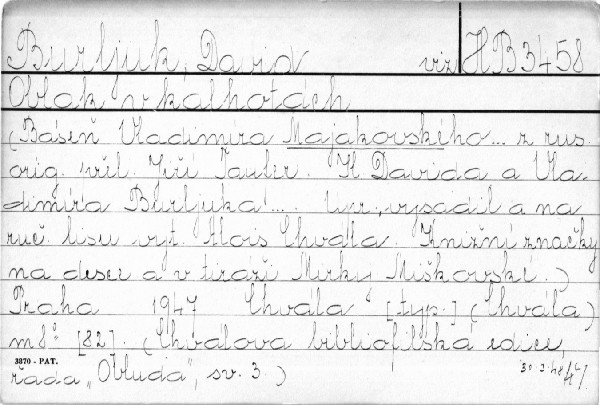 Burljuk, David viz HB3458
Oblak v kalhotách
(Báseň Vladimíra Majakovského... z rus.
orig. přel. Jiří Taufer. Il. David a Vla-
dimíra Burljuka... Upr., vysadil a na
ruč. lisu vyt. Alois Chvála. Knižní značky
na desce a v tiráži Mirky Miškovské.)
Praha 1947 Chvála [typ.] (Chvála)
m8° [82]. (Chválova bibliofilská edice,
3870 - PAT.
řada „Obluda", sv. 3.)
30.3.48